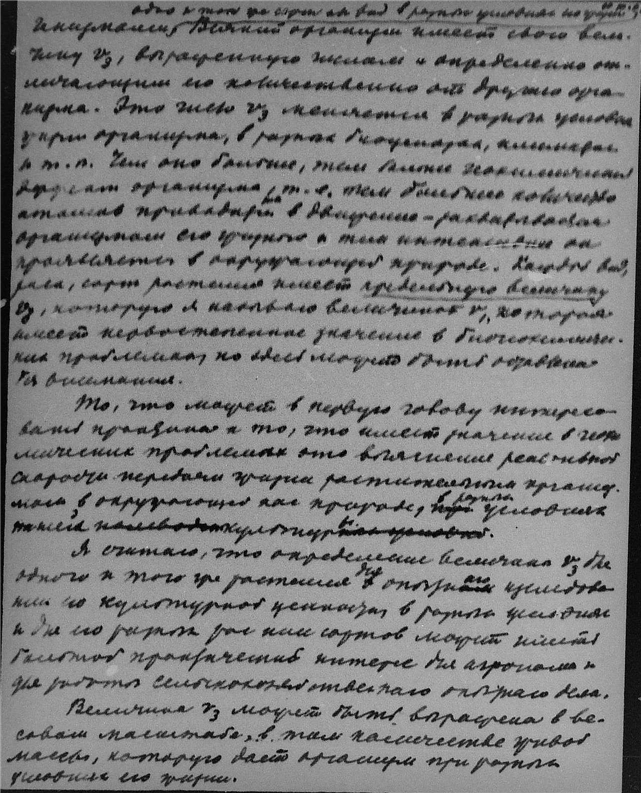 одно и то же сорт или вид в разных условиях
организма. Всякий организм имеет свою вели-
чину v₃, выраженную числом и определенно от-
личающим его количественно от другого орга-
низма. Это число v₃ меняется в разных условиях
жизни организма, в разных биоценозах, климатах
и т. п. Чем оно больше, тем больше геохимический
эффект организма, т. е. тем большее количество
атомов приводится в движение
организмом его жизнью и тем интенсивнее он
проявляется в окружающей природе. Каждый вид,
раса, сорт растения имеет предельную величину
v₃, которую я называю величиной v, которая
имеет первостепенное значение в биогеохимиче-
ских проблемах, но здесь может быть оставлена
без внимания.
То, что может в первую голову интересо-
вать практика и то, что имеет значение в геохи-
мических проблемах это выяснение реальной
скорости передачи жизни растительным организ-
мом в окружающей нас природе, в разных условиях
культуры.
Я считаю, что определение величины v₃ для
одного и того же растения для опытного исследова-
ния его культурной ценности, в разных условиях
и для его разных рас или сортов может иметь
большой практический интерес для агронома и
для работы сельскохозяйственного опытного дела.
Величина v₃ может быть выражена в ве-
совом масштабе, в том количестве живой
массы, которую дает организм при разных
условиях его жизни.